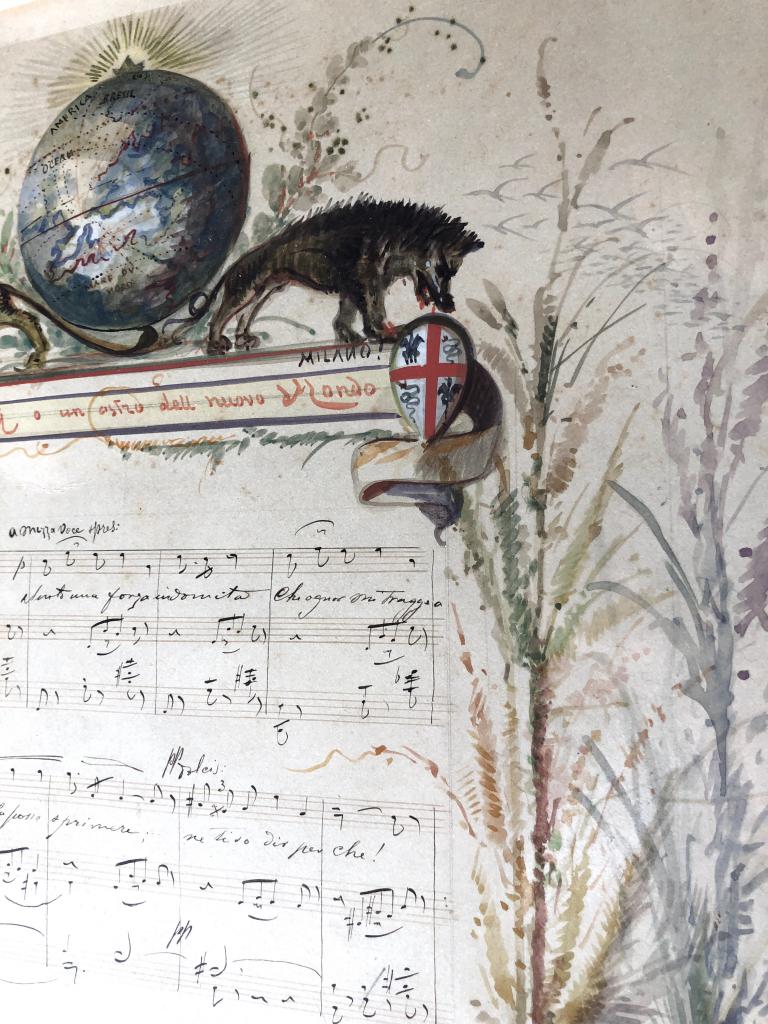 AMERICA BRESIL
MILANO!
o un astro dell nuovo Mondo
a mezza voce espres:
p
una forza indomita Che ognor mi tragge a
pp Dolcis:
3
posso esprimere; ne ti so dir per che!
pp